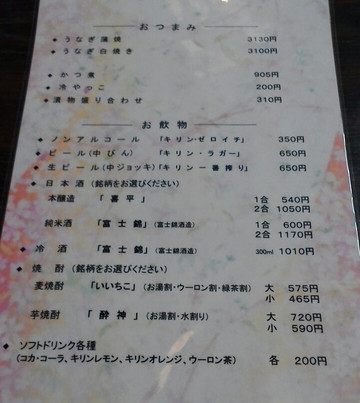 おつまみ
◆ うなぎ蒲焼 3130円
◆ うなぎ白焼き 3100円
◆ かつ煮 905円
◆ 冷やっこ 200円
◆ 漬物盛り合わせ 310円
お飲物
◆ ノンアルコール 「キリン・ゼロイチ」 350円
◆ ビール(中びん) 「キリン・ラガー」 650円
◆ 生ビール(中ジョッキ)「キリン一番搾り」 650円
◆ 日本酒(銘柄をお選びください)
本醸造 「喜平」 1合 540円
2合 1050円
純米酒 「富士錦」(富士錦酒造) 1合 600円
2合 1170円
◆ 冷酒 「富士錦」(富士錦酒造) 300ml 1010円
◆ 焼酎(銘柄をお選びください)
麦焼酎 「いいちこ」(お湯割・ウーロン割・緑茶割) 大 575円
小 465円
芋焼酎 「酔神」(お湯割・水割り) 大 720円
小 590円
◆ ソフトドリンク各種
(コカ・コーラ、キリンレモン、キリンオレンジ、ウーロン茶) 各 200円